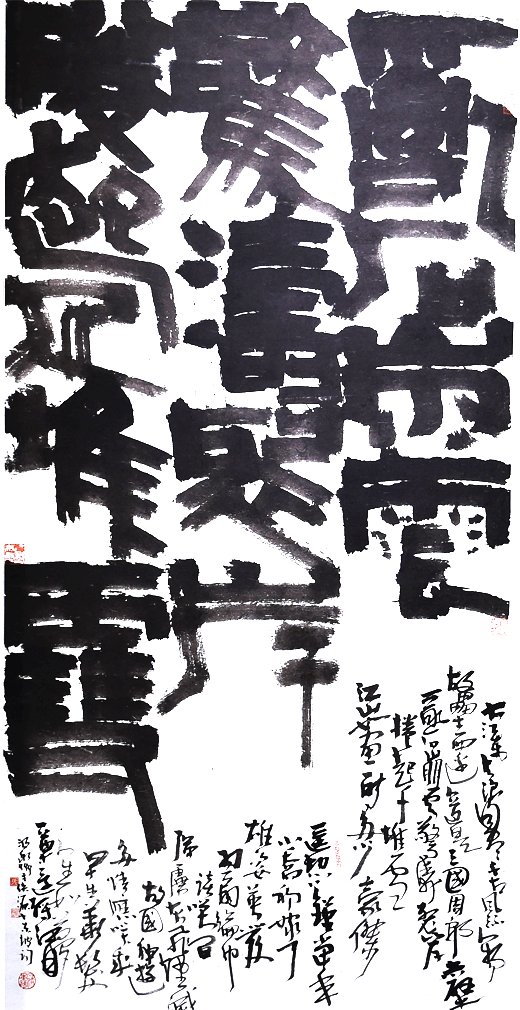 亂石崩雲
驚濤裂岸
捲起千堆雪
大江東去浪淘盡千古風流人物
故壘西邊人道是三國周郎赤壁
亂石崩雲驚濤裂岸
捲起千堆雪
江山如畫一時多少豪傑
遥想公瑾當年
小喬初嫁了
雄姿英發
羽扇綸巾
談笑間
灰飛煙滅
故國神遊
多情應笑我
早生華髮
人生如夢
一尊還酹江月